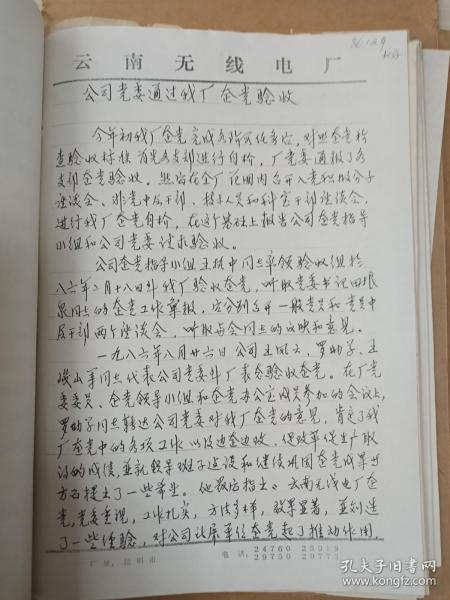 86.12.9
云南无线电厂
公司党委通过我厂企党验收
今年初我厂企党完成各阶段任务后，对照企党检
查验收标准首先各支部进行自检，厂党委通报了各
支部企党验收。然后在全厂范围内召开入党积极分子
座谈会、非党中层干部、技术人员和科室干部座谈会，
进行我厂企党自检，在这个基础上报告公司企党指导
小组和公司党委请求验收。
公司企党指导小组王 中同志率领验收组于
八六年 月十八日来我厂验收企党，听取党委书记田
泉同志的企党工作汇报，应分别召开一般党员和党员中
层干部两个座谈会，听取与会同志的反映和意见。
一九八六年八月廿六日公司王凤云、罗幼予、王
峨山等同志代表公司党委来厂表态验收企党。在厂党
委委员、企党领导小组和企党办公室成员参加的会议上，
罗幼予同志转达公司党委对我厂企党的意见，肯定了我
厂企党中的各项工作以及边企边改、促改革促生产取
得的成绩，并就领导班子建设和继续巩固企党成果等
方面提出了一些希望。他最后指出：云南无线电厂企
党，党委重视，工作扎实，方法多样，效果显著，并创造
了一些经验，对公司让属单位企党起了推动作用。
厂址：昆明市
电话：24760 25019
29750 29773
孔夫子旧书网